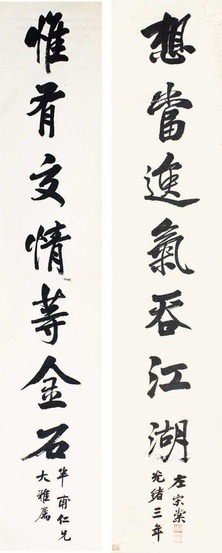 想當逸氣吞江湖
左宗棠
光緒三年
惟有交情等金石
半甫仁兄
大雅屬